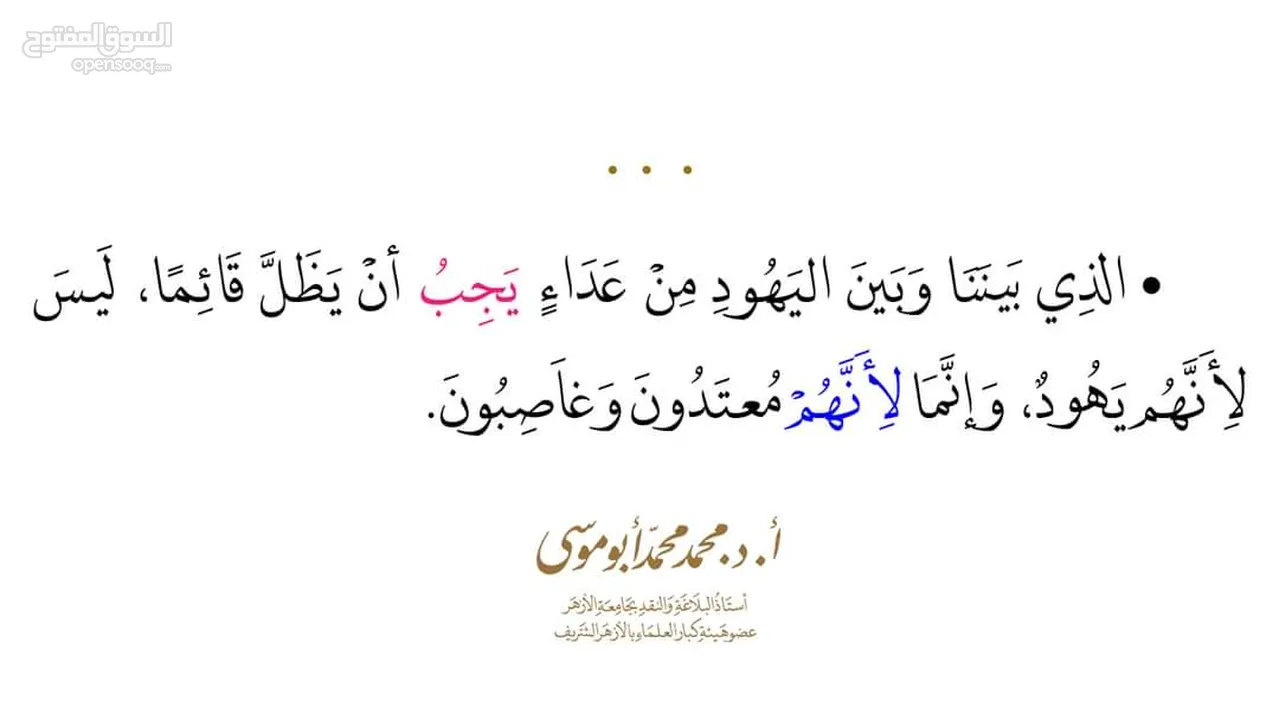 السوق المفتوح
opensooq.com
• الذِي بَينَنَا وَبَينَ اليَهُودِ مِنْ عَدَاءٍ يَجِبُ أنْ يَظَلَّ قَائِمًا، لَيسَ
لِأَنَّهُم يَهُودٌ، وَإنَّمَا لِأَنَّهُمْ مُعتَدُونَ وَغَاصِبُونَ.
أ. د. محمد محمّد أبو موسى
أستَاذُ البَلَاغَةِ وَالنقدِ بجَامِعَةِ الأزهَر
عضو هَيئةِ كبار العلمَاءِ بالأزهَر الشَّريف